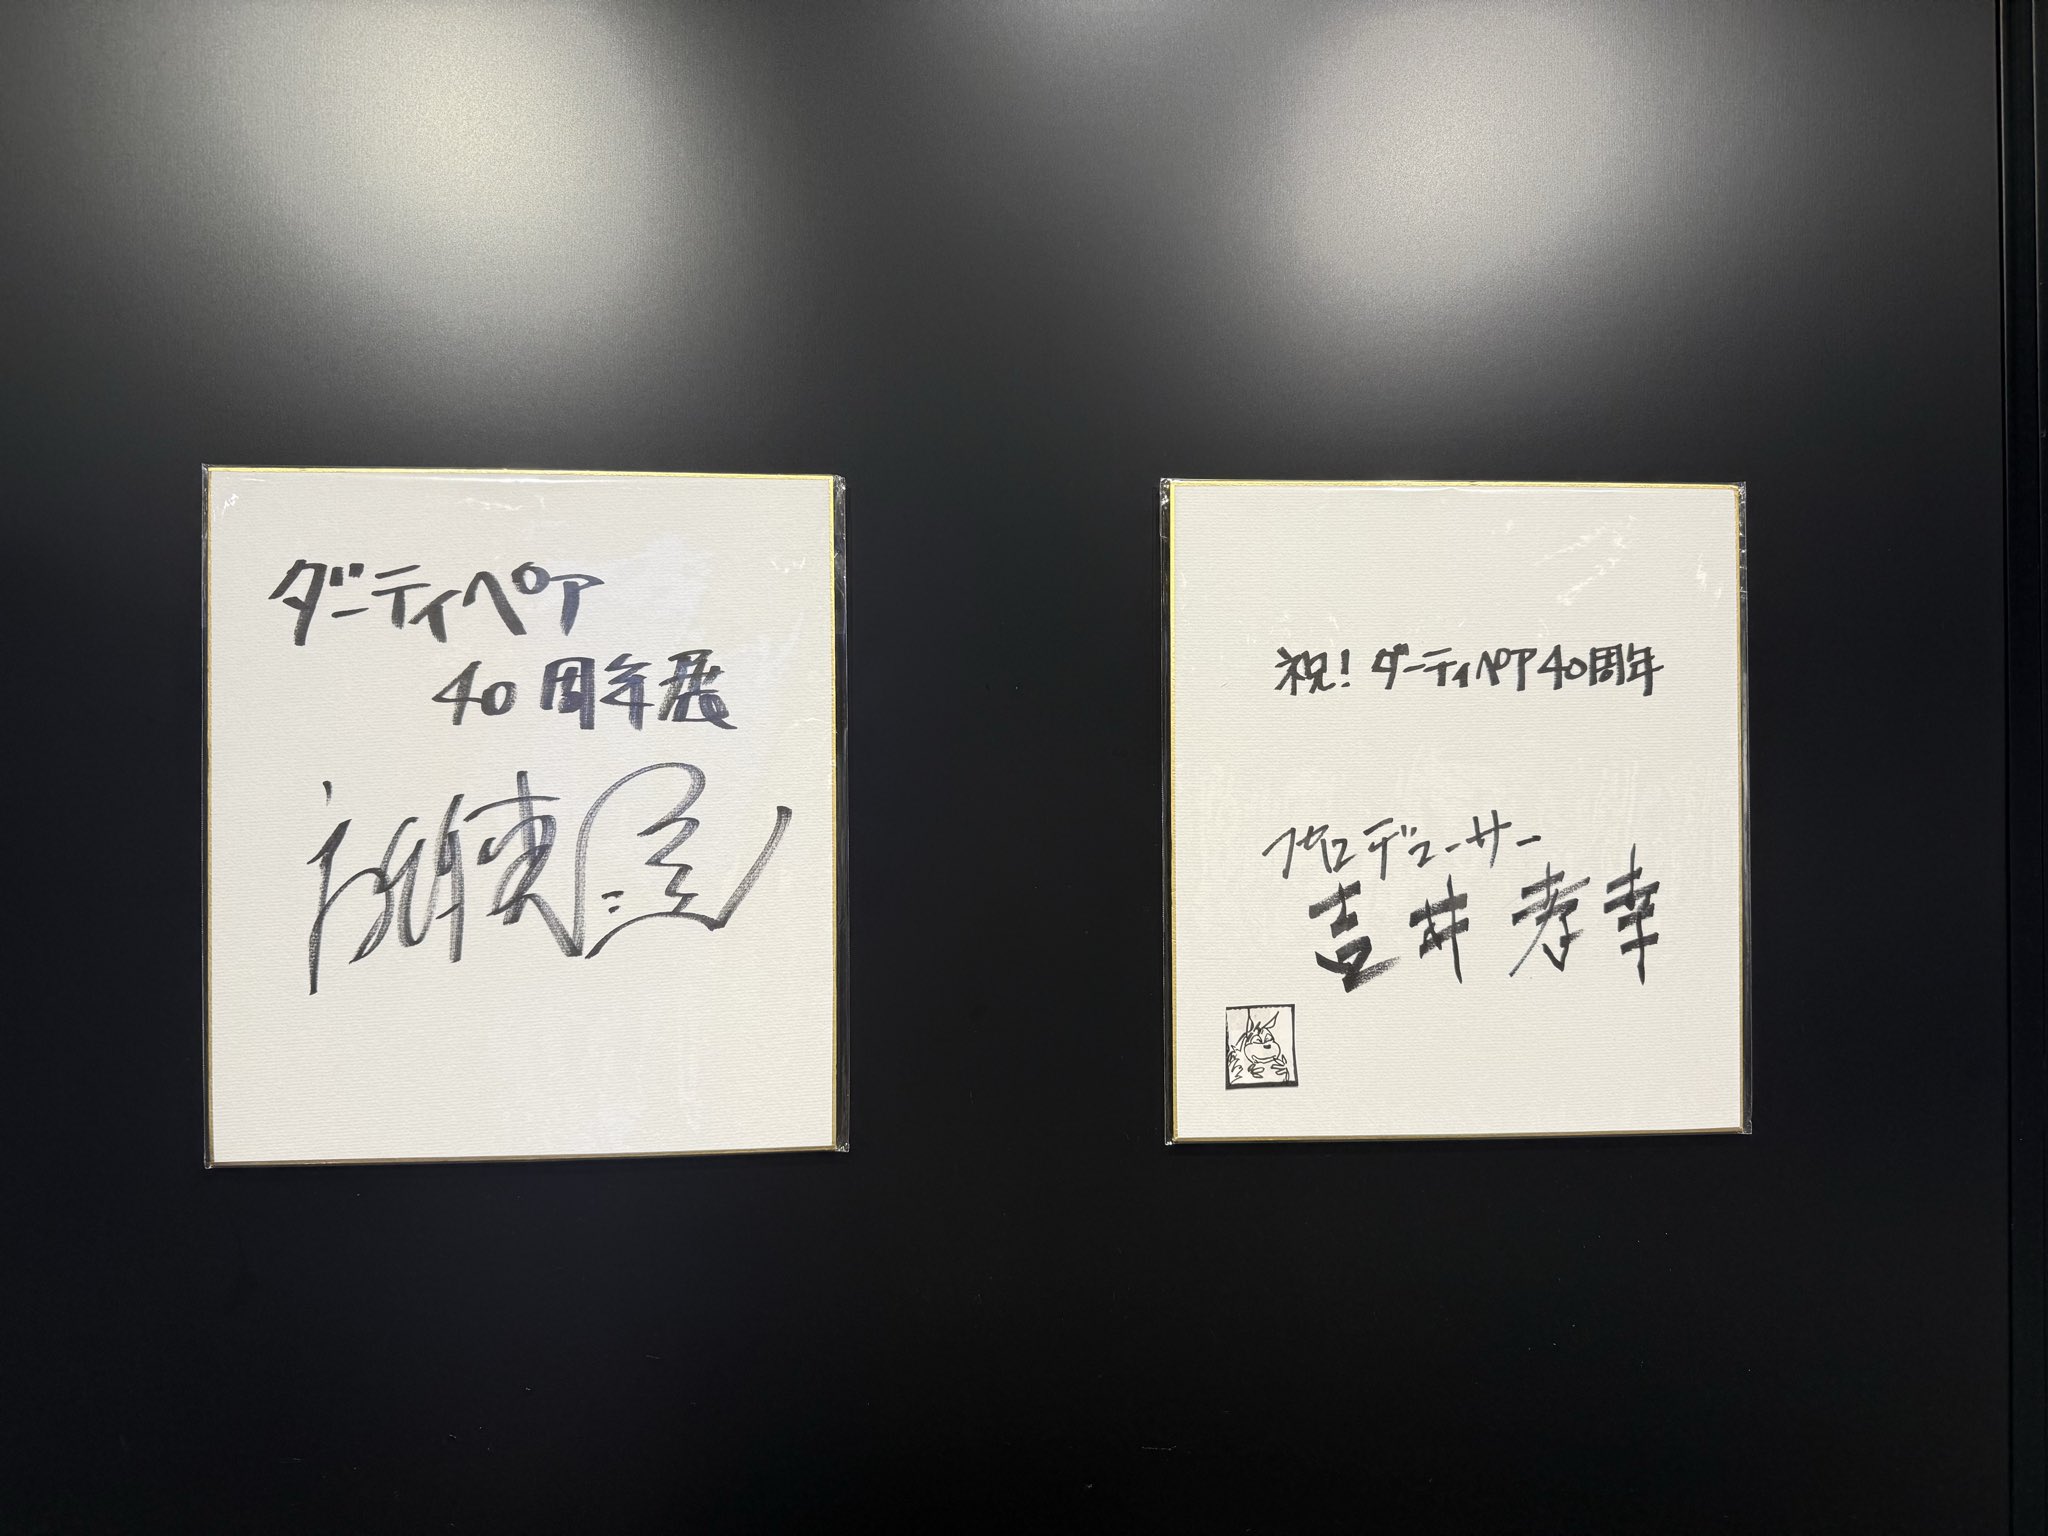 ダーティペア
40周年展
祝！ダーティペア40周年
プロデューサー
吉井孝幸